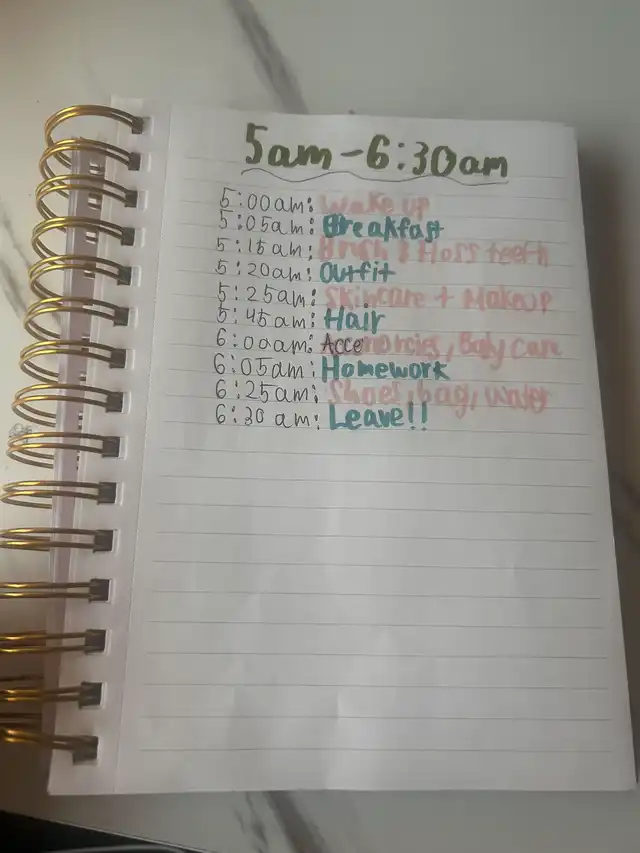 5am-6:30am
5:00am: Wake up
5:05am: Breakfast
5:15am: Brush & Floss teeth
5:20am: Outfit
5:25am: Skincare + Makeup
5:45am: Hair
6:00am: Accesnorcies, Body care
6:05am: Homework
6:25am: Shoes, bag, water
6:30am: Leave!!